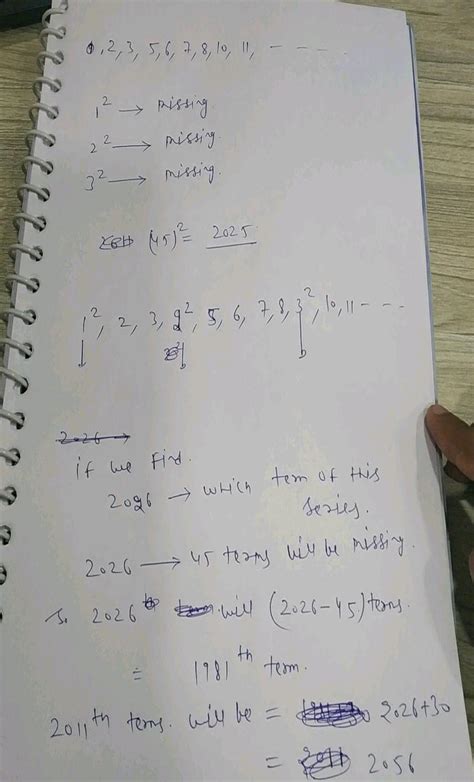 , 2, 3, 5, 6, 7, 8, 10, 11, - - - - .
1² → missing.
2² → missing.
3² → missing.
(45)² = 2025
1², 2, 3, 2², 5, 6, 7, 8, 3², 10, 11 - - - -
2026 →
if we find.
2026 → which term of this
series.
2026 → 45 terms will be missing.
So 2026 will (2026-45) terms.
= 1981th term.
2011th terms. will be = 2026+30
= 2056